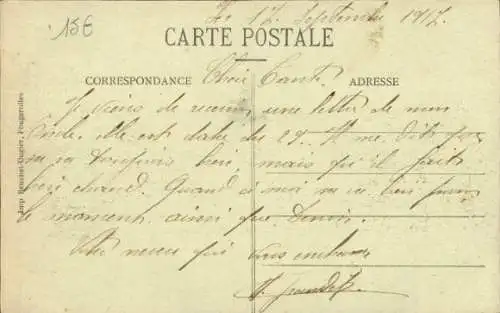 15€
Le 12 Septembre 1917
CARTE POSTALE
CORRESPONDANCE
Chère Tante
ADRESSE
Je viens de recevoir une lettre de mon
Oncle. Elle est datée du 29. Il me dit que
va toujours bien, mais qu'il fait
bien chaud. Quand à moi va bien pour
le moment ainsi que
Votre neveu qui vous embrasse
Imp. Reuchet-Ougier, Fougerolles